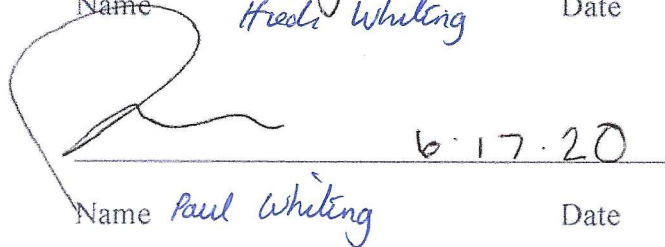 Name Heidi Whiting Date
6.17.20
Name Paul Whiting Date